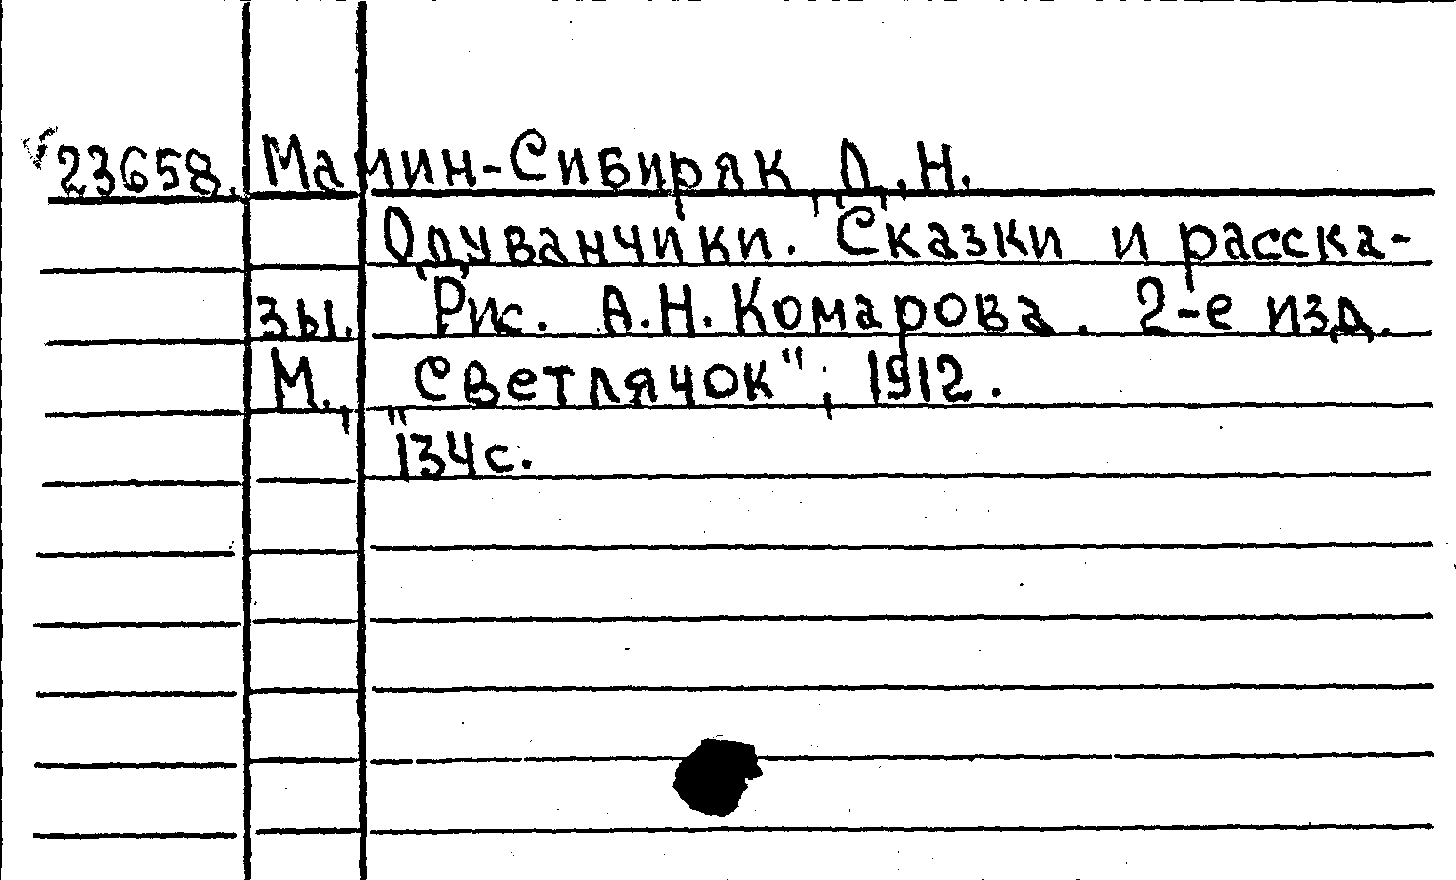 23658. Мамин-Сибиряк, Д.Н.
Одуванчики. Сказки и расска-
зы. Рис. А.Н. Комарова. 2-е изд.
М., „Светлячок", 1912.
134с.